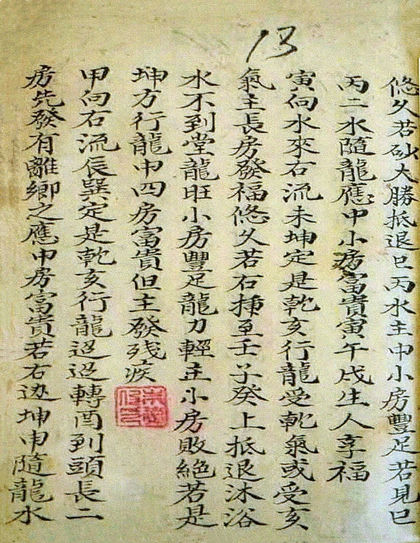 13
悠久若砂太勝抵退巳丙水主中小房豐足若見巳
丙二水隨龍應中小房富貴寅午戌生人享福
寅向水來石流未坤定是乾亥行龍受乾氣或受亥
氣主長房發福悠久若石揷至壬子癸上抵退沐浴
水不到堂龍旺小房豐足龍力輕主小房敗絕若是
坤方行龍中四房富貴但主發殘疾
甲向石流辰巽定是乾亥行龍迢迢轉酉到頭長二
房先發有離鄉之應中房富貴若右边坤申隨龍水